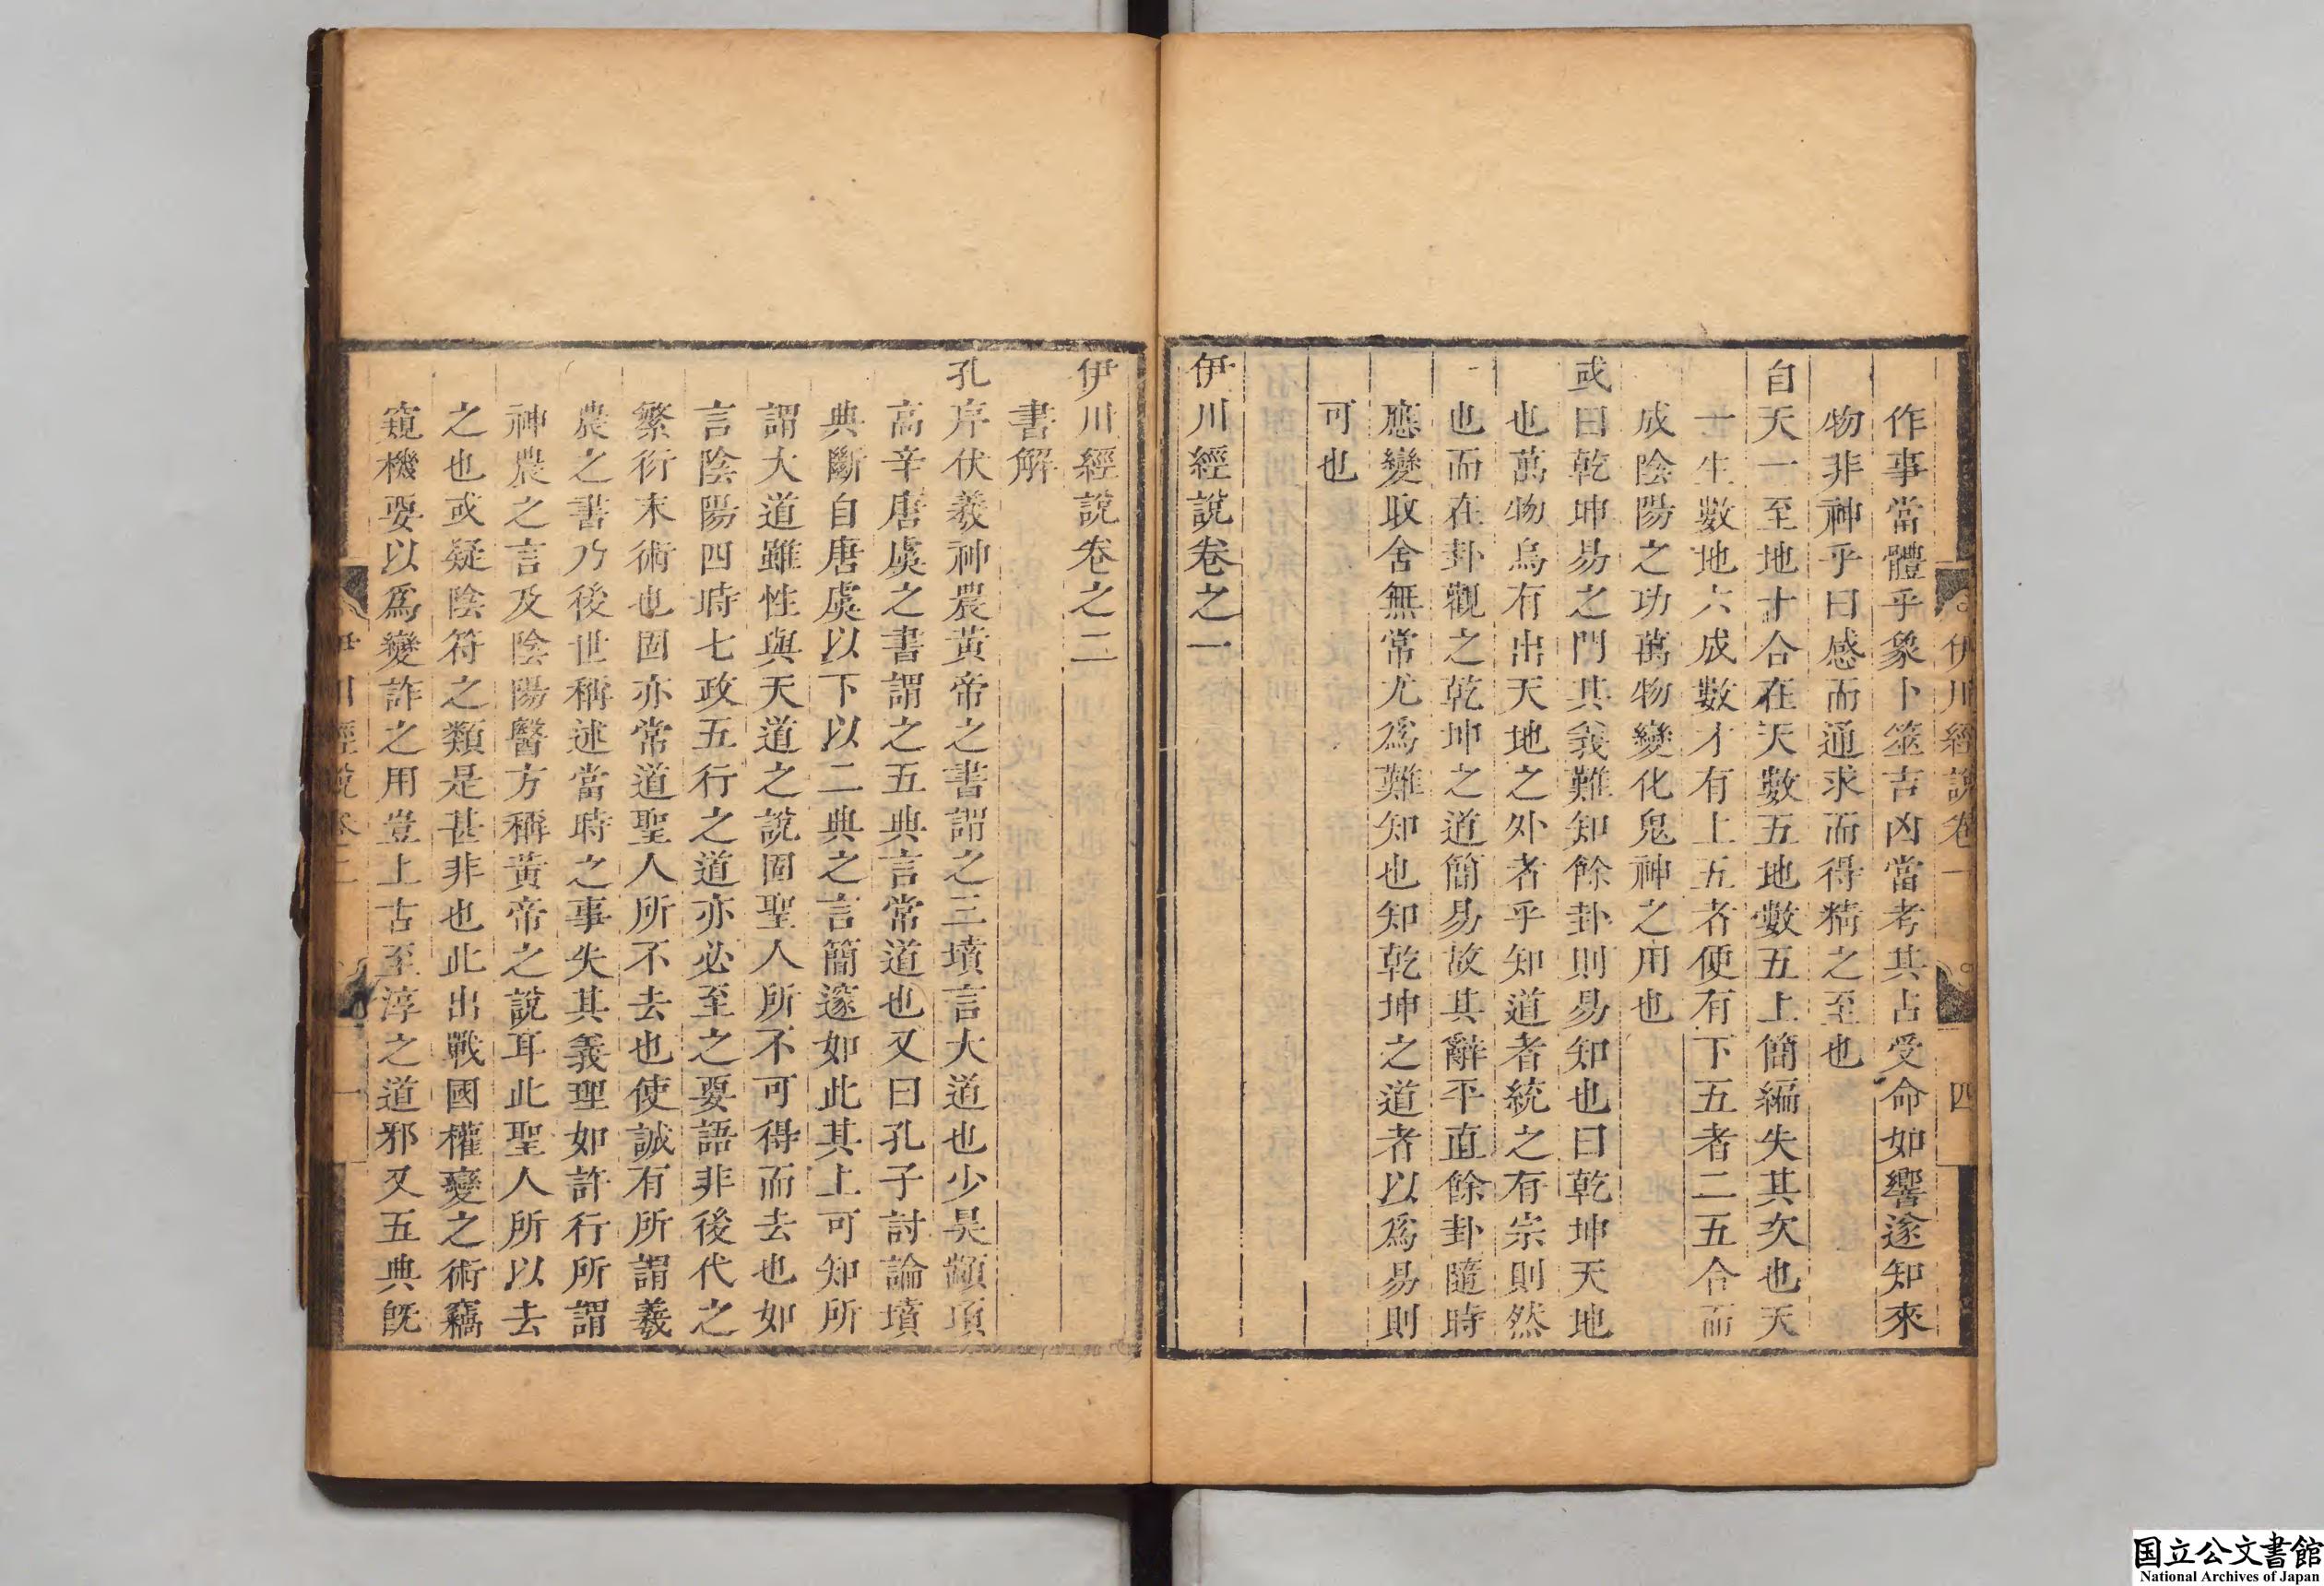 伊川經說卷一 四
作事當體乎象卜筮吉凶當考其占受命如響遂知來
物非神乎曰感而通求而得精之至也
自天一至地十合在天數五地數五上簡編失其次也天
一生數地六成數才有上五者便有下五者二五合而
成陰陽之功萬物變化鬼神之用也
或曰乾坤易之門其義難知餘卦則易知也曰乾坤天地
也萬物烏有出天地之外者乎知道者統之有宗則然
也而在卦觀之乾坤之道簡易故其辭平直餘卦隨時
應變取舍無常尤爲難知也知乾坤之道者以爲易則
可也
伊川經說卷之一
伊川經說卷之二
書解
孔序伏羲神農黃帝之書謂之三墳言大道也少昊顓頊
高辛唐虞之書謂之五典言常道也又曰孔子討論墳
典斷自唐虞以下以二典之言簡邃如此其上可知所
謂大道雖性與天道之說固聖人所不可得而去也如
言陰陽四時七政五行之道亦必至之要語非後代之
繁衍末術也固亦常道聖人所不去也使誠有所謂羲
農之書乃後世稱述當時之事失其義理如許行所謂
神農之言及陰陽醫方稱黃帝之說耳此聖人所以去
之也或疑陰符之類是甚非也此出戰國權變之術竊
窺機要以爲變詐之用豈上古至淳之道邪又五典旣
伊川經說卷二 一
国立公文書館
National Archives of Japan